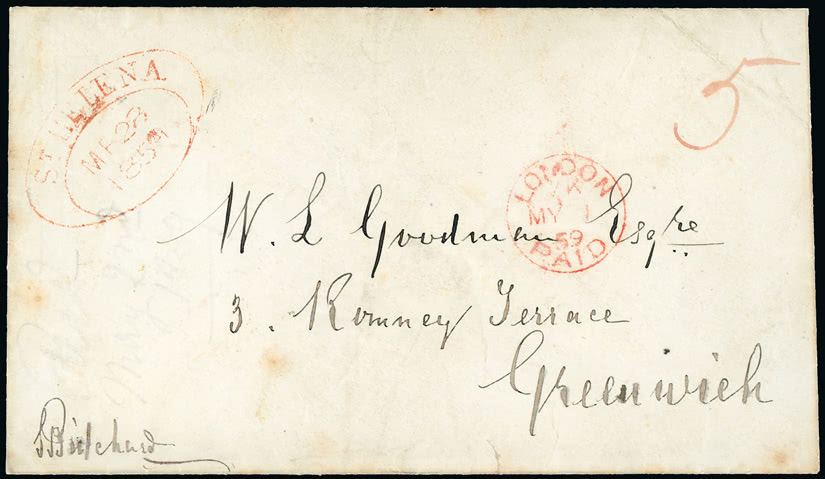 ST HELENA
MR 28
1859
5
LONDON
K
MY 1
59
PAID
W. L Goodman Esqre
3. Romney Terrace
Greenwich
Pritchard